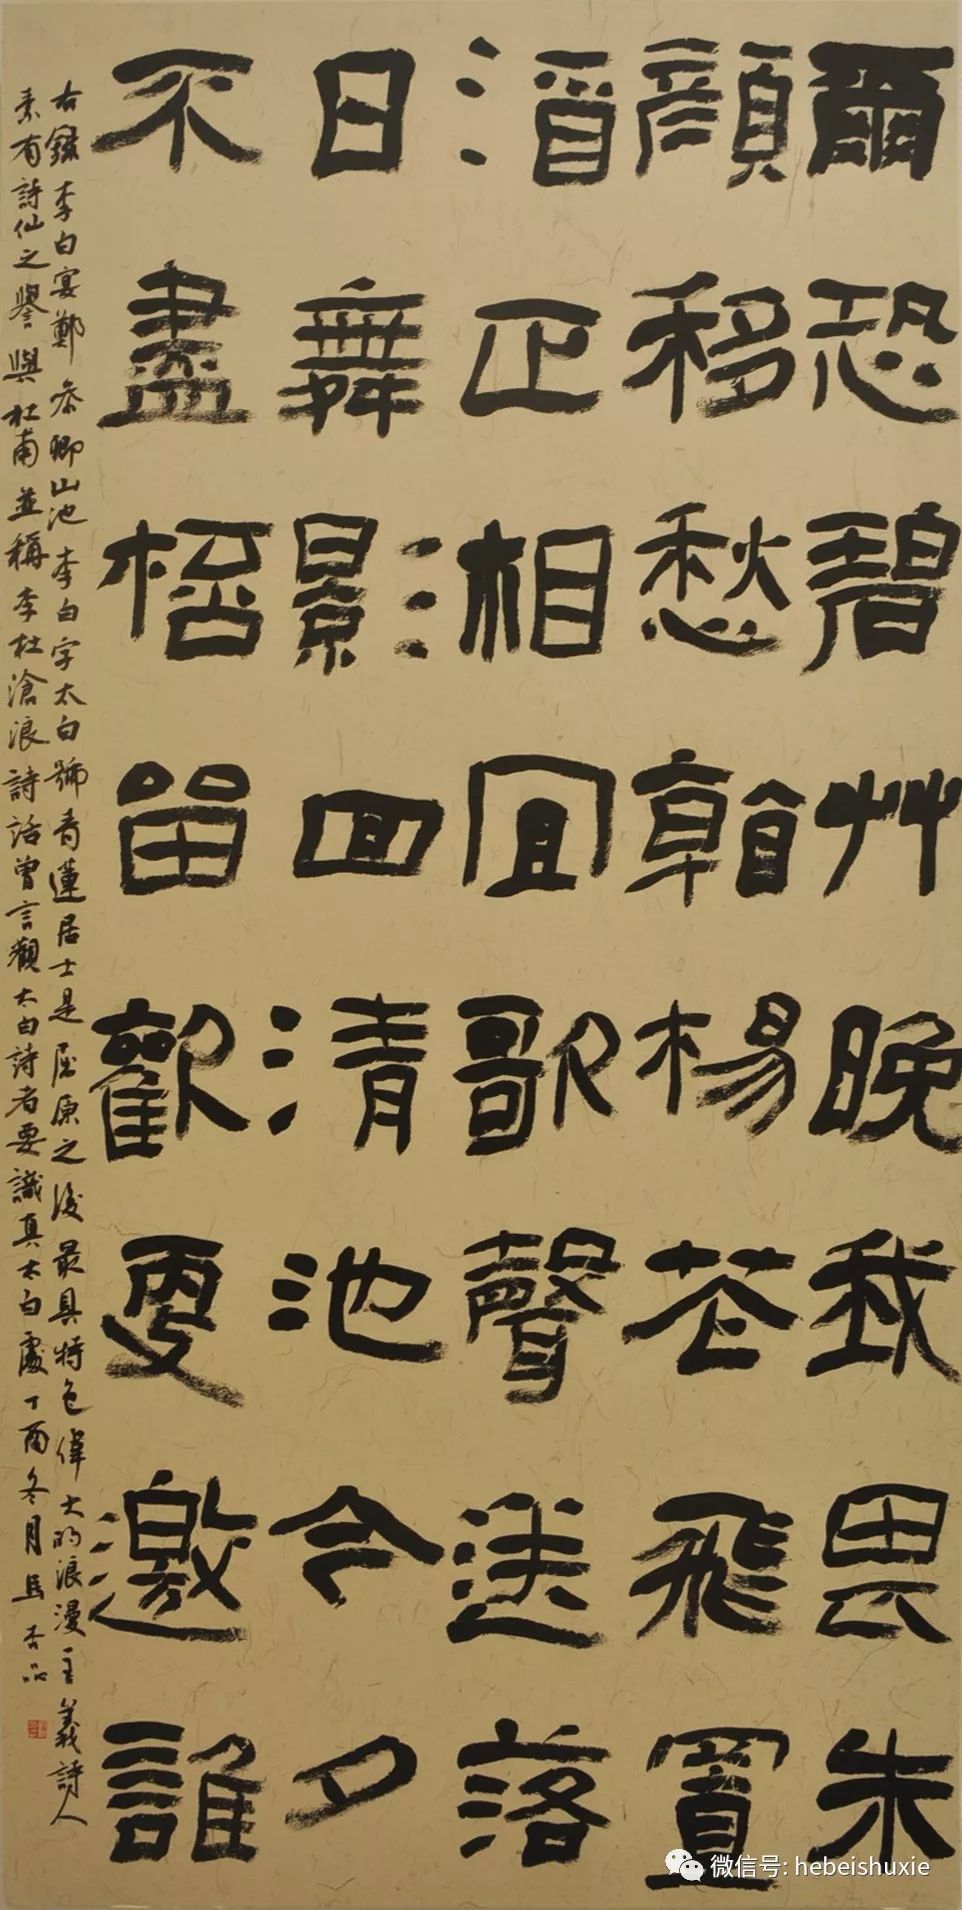 爾恐碧艸晚我畏朱
顏移愁看楊花飛置
酒正相宜歌聲送落
日舞影回清池今夕
不盡桮留歡更邀誰
右錄李白宴鄭參卿山池李白字太白號青蓮居士是屈原之後最具特色偉大的浪漫主義詩人
素有詩仙之譽與杜甫並稱李杜滄浪詩話曾言觀太白詩者要識真太白處丁酉冬月
微信号: hebeishuxie